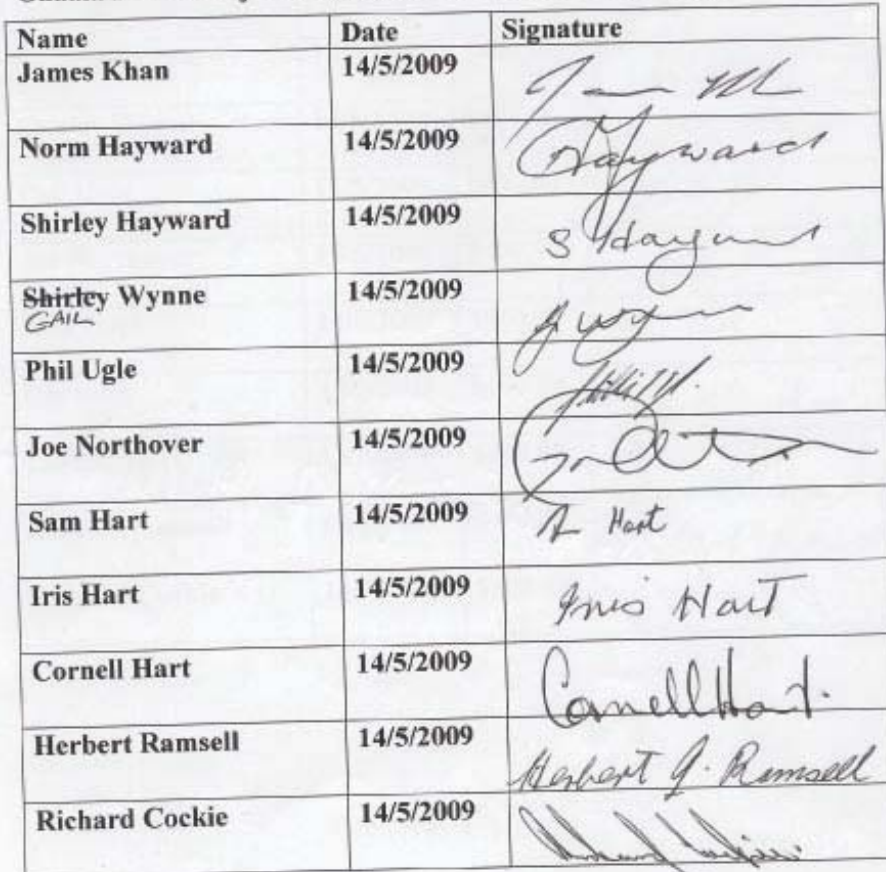 Name Date Signature
James Khan 14/5/2009
Norm Hayward 14/5/2009 Hayward
Shirley Hayward 14/5/2009 S Hayward
Shirley Wynne 14/5/2009 G Wynne
GAIL
Phil Ugle 14/5/2009
Joe Northover 14/5/2009
Sam Hart 14/5/2009 S Hart
Iris Hart 14/5/2009 Iris Hart
Cornell Hart 14/5/2009 Cornell Hart.
Herbert Ramsell 14/5/2009 Herbert G. Ramsell
Richard Cockie 14/5/2009